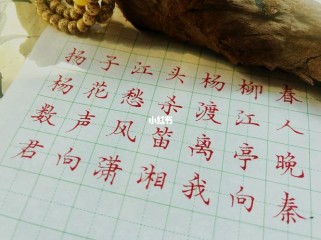 扬子江头杨柳春
杨花愁杀渡江人
数声风笛离亭晚
君向潇湘我向秦
小红书